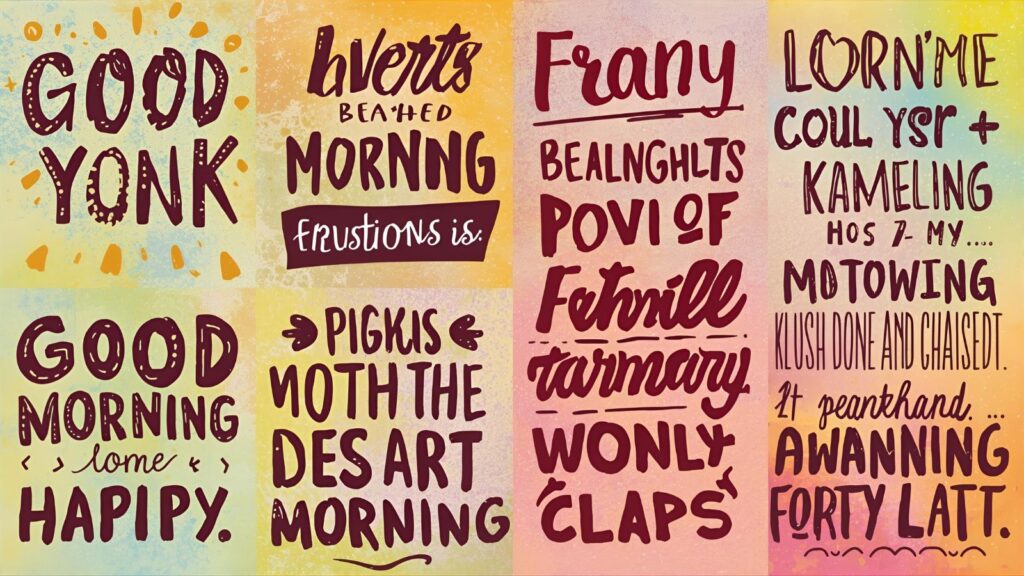 GOOD
YONK
hverts
BEATHED
MORNNG
FRUSTIONS is.
GOOD
MORNING
lome
HAPIPY.
PIGKIS
NOTH THE
DES ART
MORNING
Frany
BEALNGHLTS
POVI OF
Fehnill
tarmary.
WONLY
CLAPS
LORN'ME
COUL YSr +
KAMELING
HOS 7- MY....
MDTOWING
KLUSH DONE AND CHAISEDT.
It peankhand. ...
AWANNING
FORTY LATT.